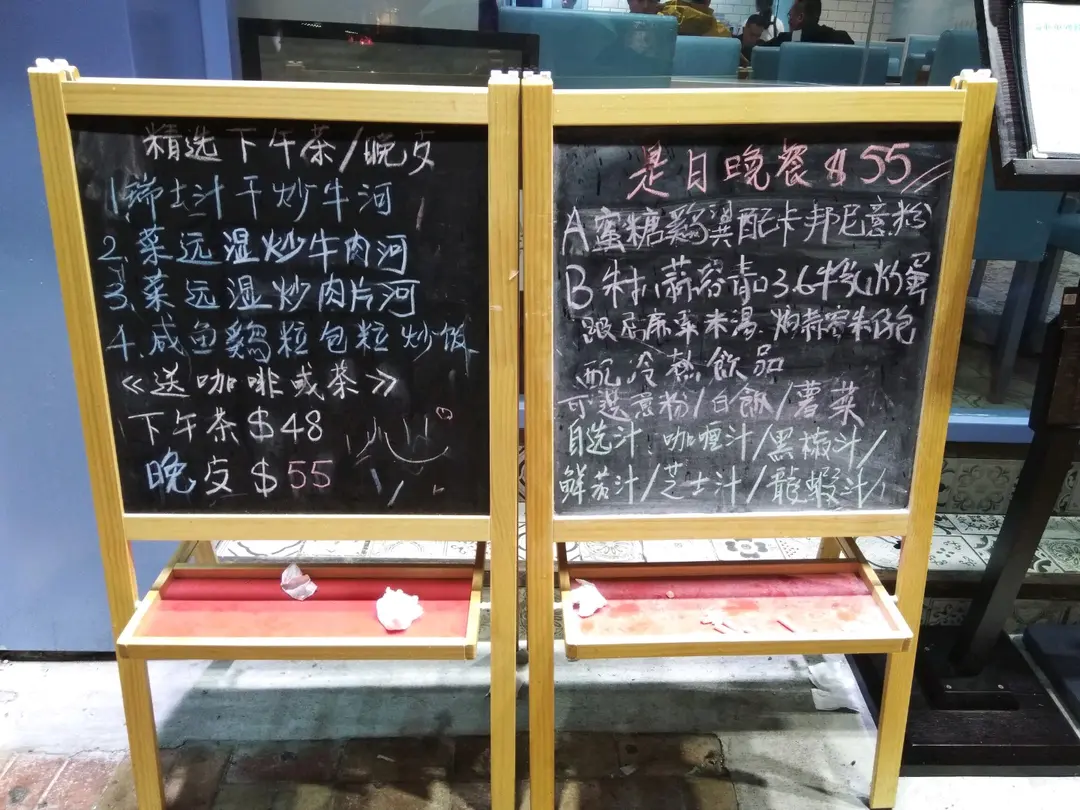 精选下午茶/晚皮
1.瑞士汁干炒牛河
2.菜远湿炒牛肉河
3.菜远湿炒肉片河
4.咸鱼鷄粒包粒炒饭
《送咖啡或茶》
下午茶$48
晚皮$55
是日晚餐$55
A蜜糖鷄選配卡邦尼意粉
B 蒜容青口3.6牛乳炒蛋
跟 米湯.
配冷热飲品
可选意粉/白飯/薯菜
自选汁:咖喱汁/黑椒汁/
鲜茄汁/芝士汁/龍蝦汁/